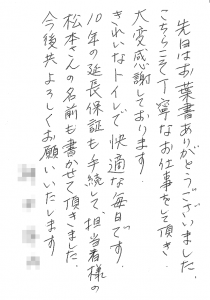 先日はお葉書ありがとうございました。
こちらこそ丁寧なお仕事をして頂き、
大変感謝しております。
きれいなトイレで快適な毎日です。
10年の延長保証も手続して、担当者様の
松本さんの名前も書かせて頂きました。
今後共よろしくお願いいたします